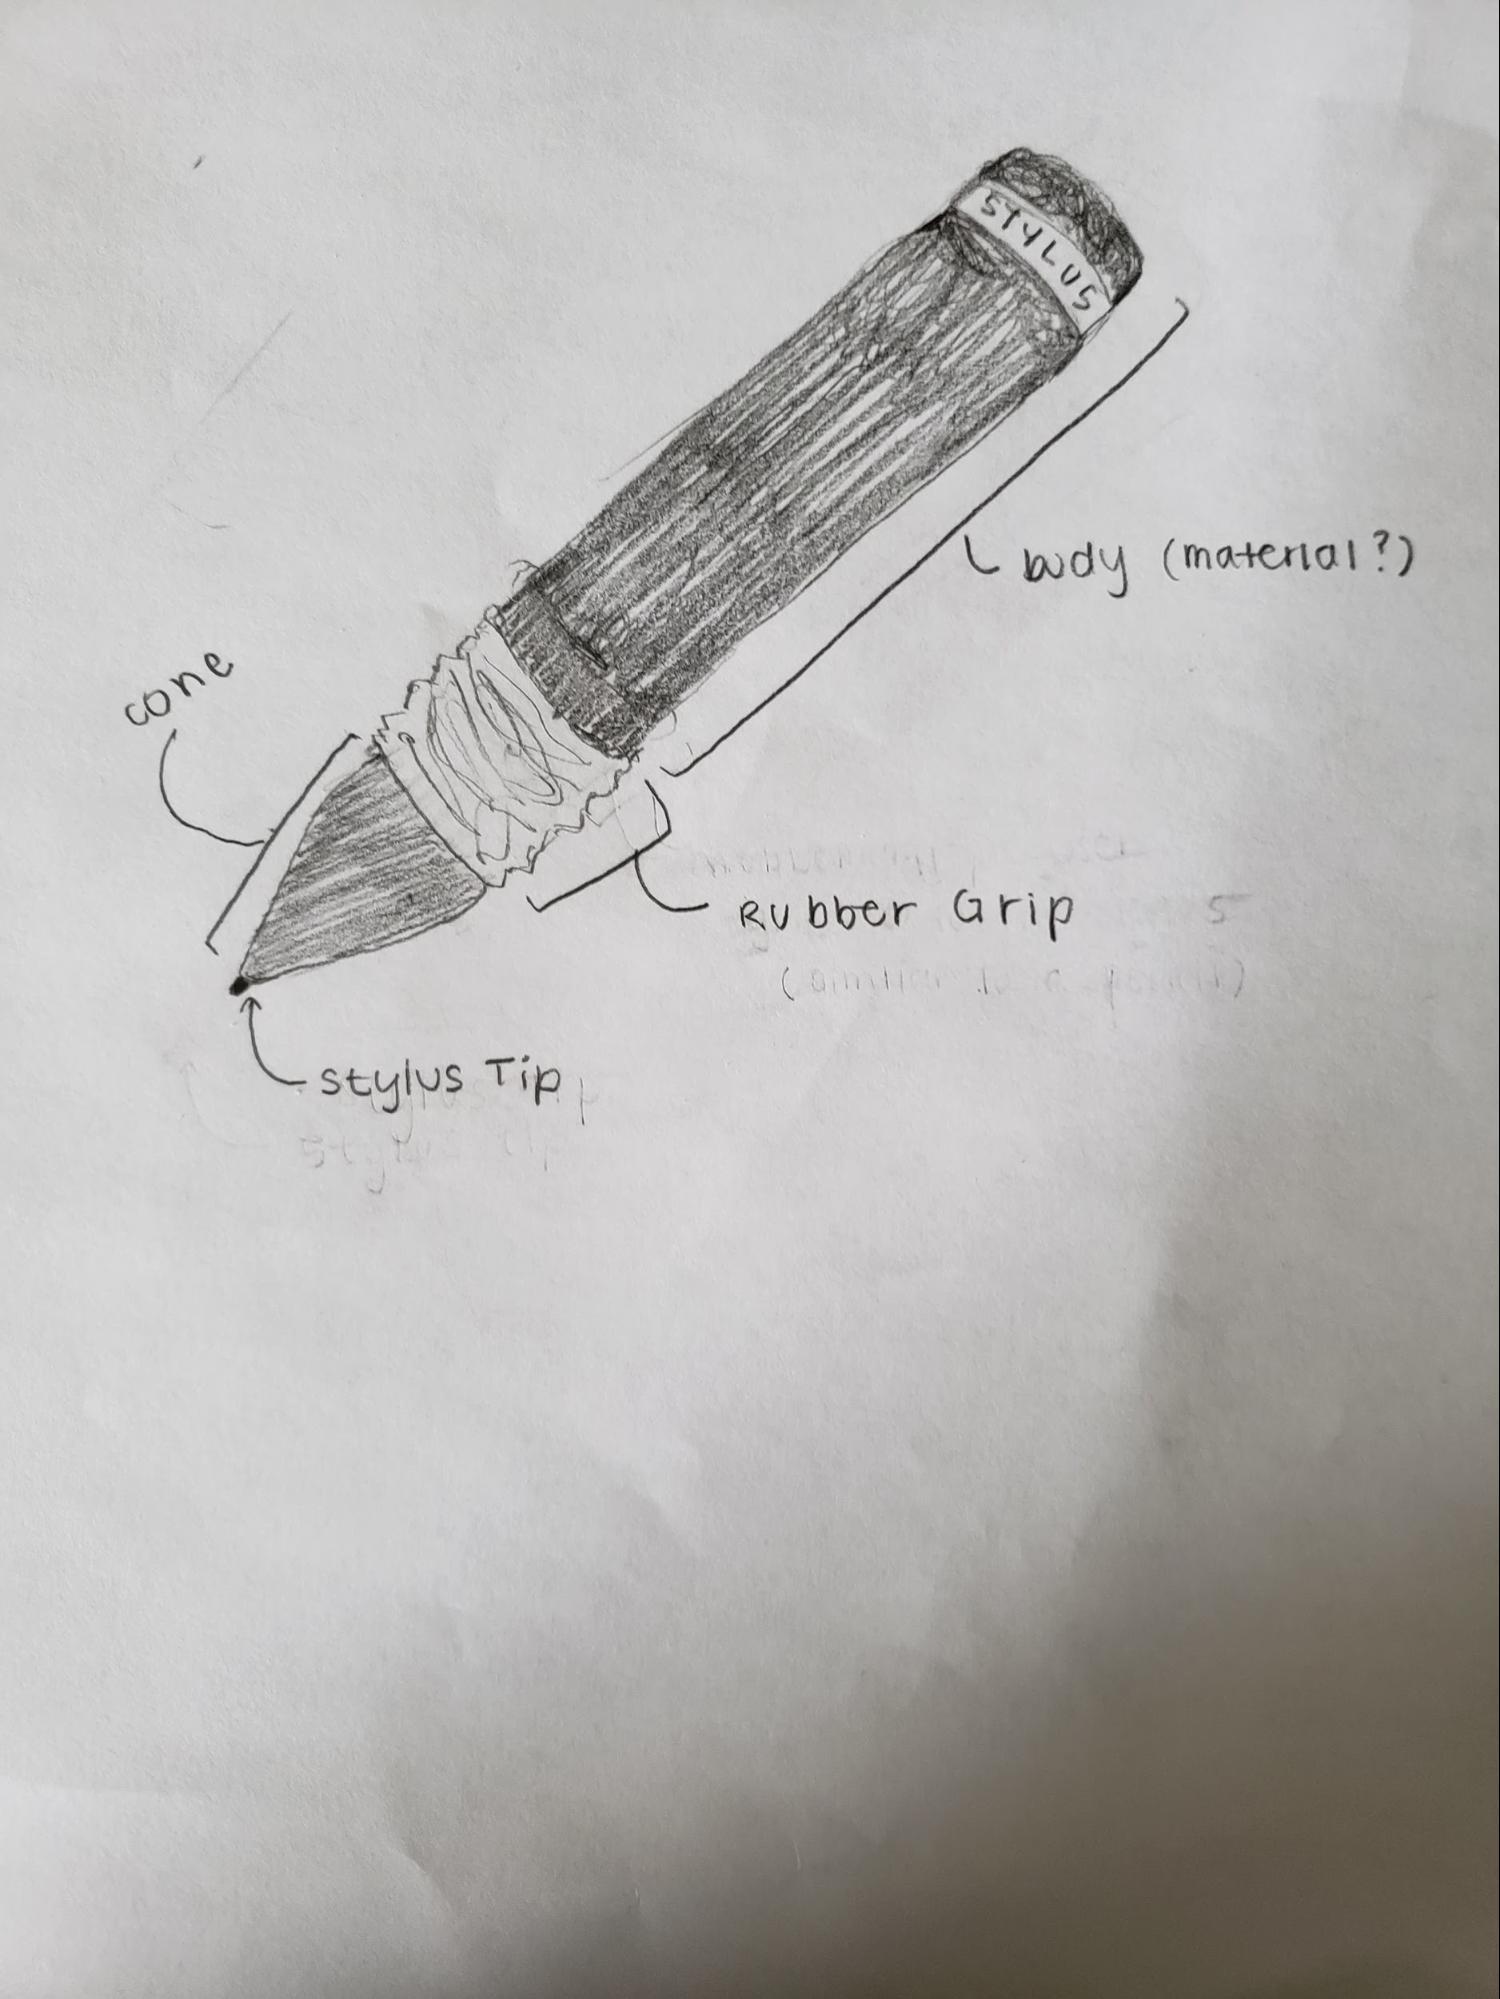 STYLUS
body (material?)
cone
Rubber Grip
5
(similar to a pencil)
stylus Tip
stylus tip